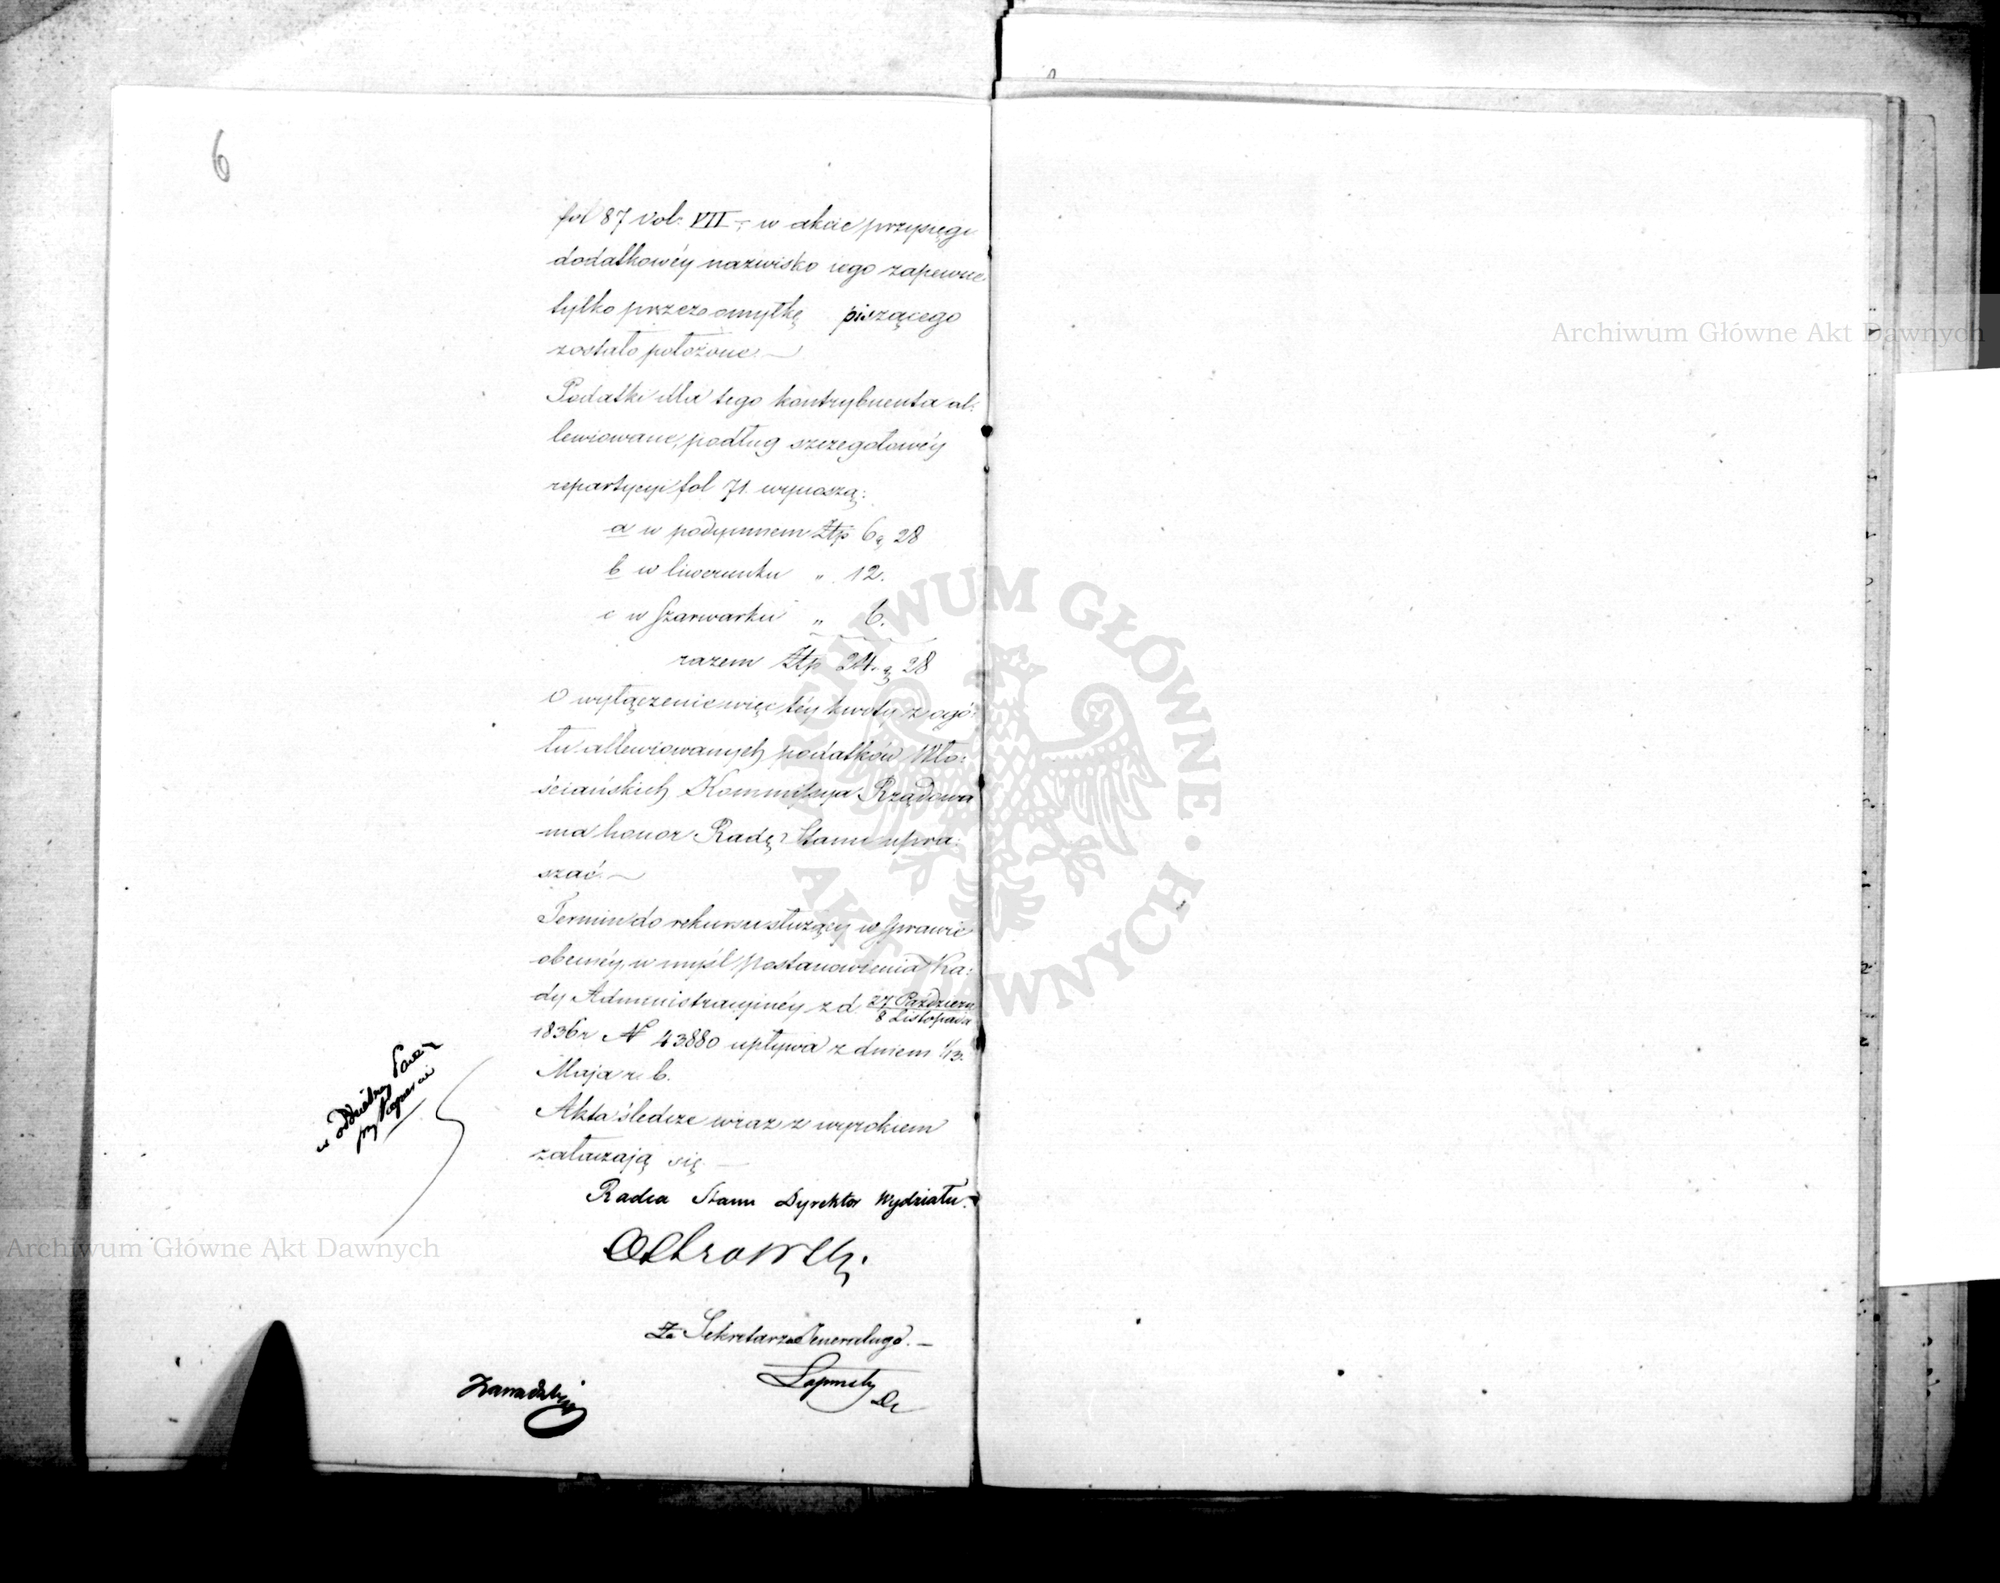 6
fol 87 vol: VII – w akcie przysięgi
dodatkowéy nazwisko iego zapewne
tylko przez omyłkę piszącego
zostało położone. —
Podatki dla tego kontrybuenta al-
lewiowane, podług szczegołowéy
repartycyi fol 71. wynoszą:
a w podymnem Złp 6 g 28
b w liwerunku „ 12.
c w szarwarku „ 6.
razem Złp 24. g 28
O wyłączenie więc téy kwoty z ogó-
łu allewiowanych podatków Wło-
ściańskich Kommissya Rządowa
ma honor Radę Stanu upra-
szać. —
Termin do rekursu służący w sprawie
obecnéy, w myśl postanowienia Ra-
dy Administracyinéy z d. 27 Październ / 8 Listopada
1836 r N 43880 upływa z dniem 1/13.
Maja r. b.
Akta śledcze wraz z wyrokiem
załaczają się —
w oddzielney
przy
Radca Stanu Dyrektor Wydziału.
Za Sekretarza Jeneralnego. —
Archiwum Główne Akt Dawnych
Archiwum Główne Akt Dawnych
ARCHIWUM GŁÓWNE · AKT DAWNYCH ·